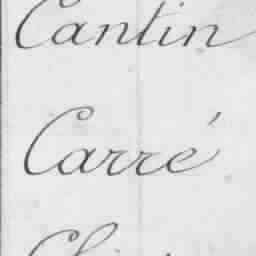 Cantin
Carré